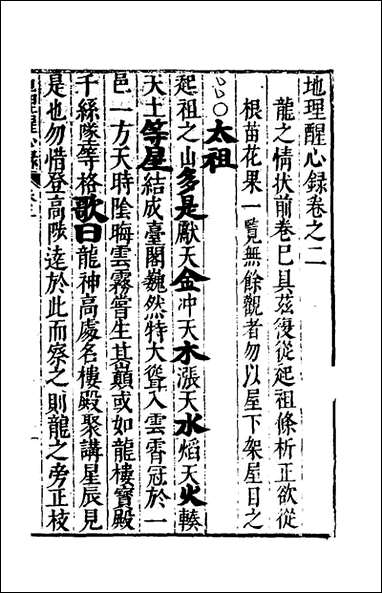 地理醒心錄卷之二
龍之情狀前巻已具茲復從起祖條析正欲從
根苗花果一覽無餘觀者勿以屋下架屋目之
○太祖
起祖之山多是獻天金冲天木漲天水熖天火輳
天土等星結成臺閣巍然特大聳入雲霄冠於一
邑一方天時陰晦雲霧嘗生其巔或如龍樓寶殿
千絲墜等格歌曰龍神高處名樓殿聚講星辰見
是也勿惜登高陟遠於此而察之則龍之旁正枝